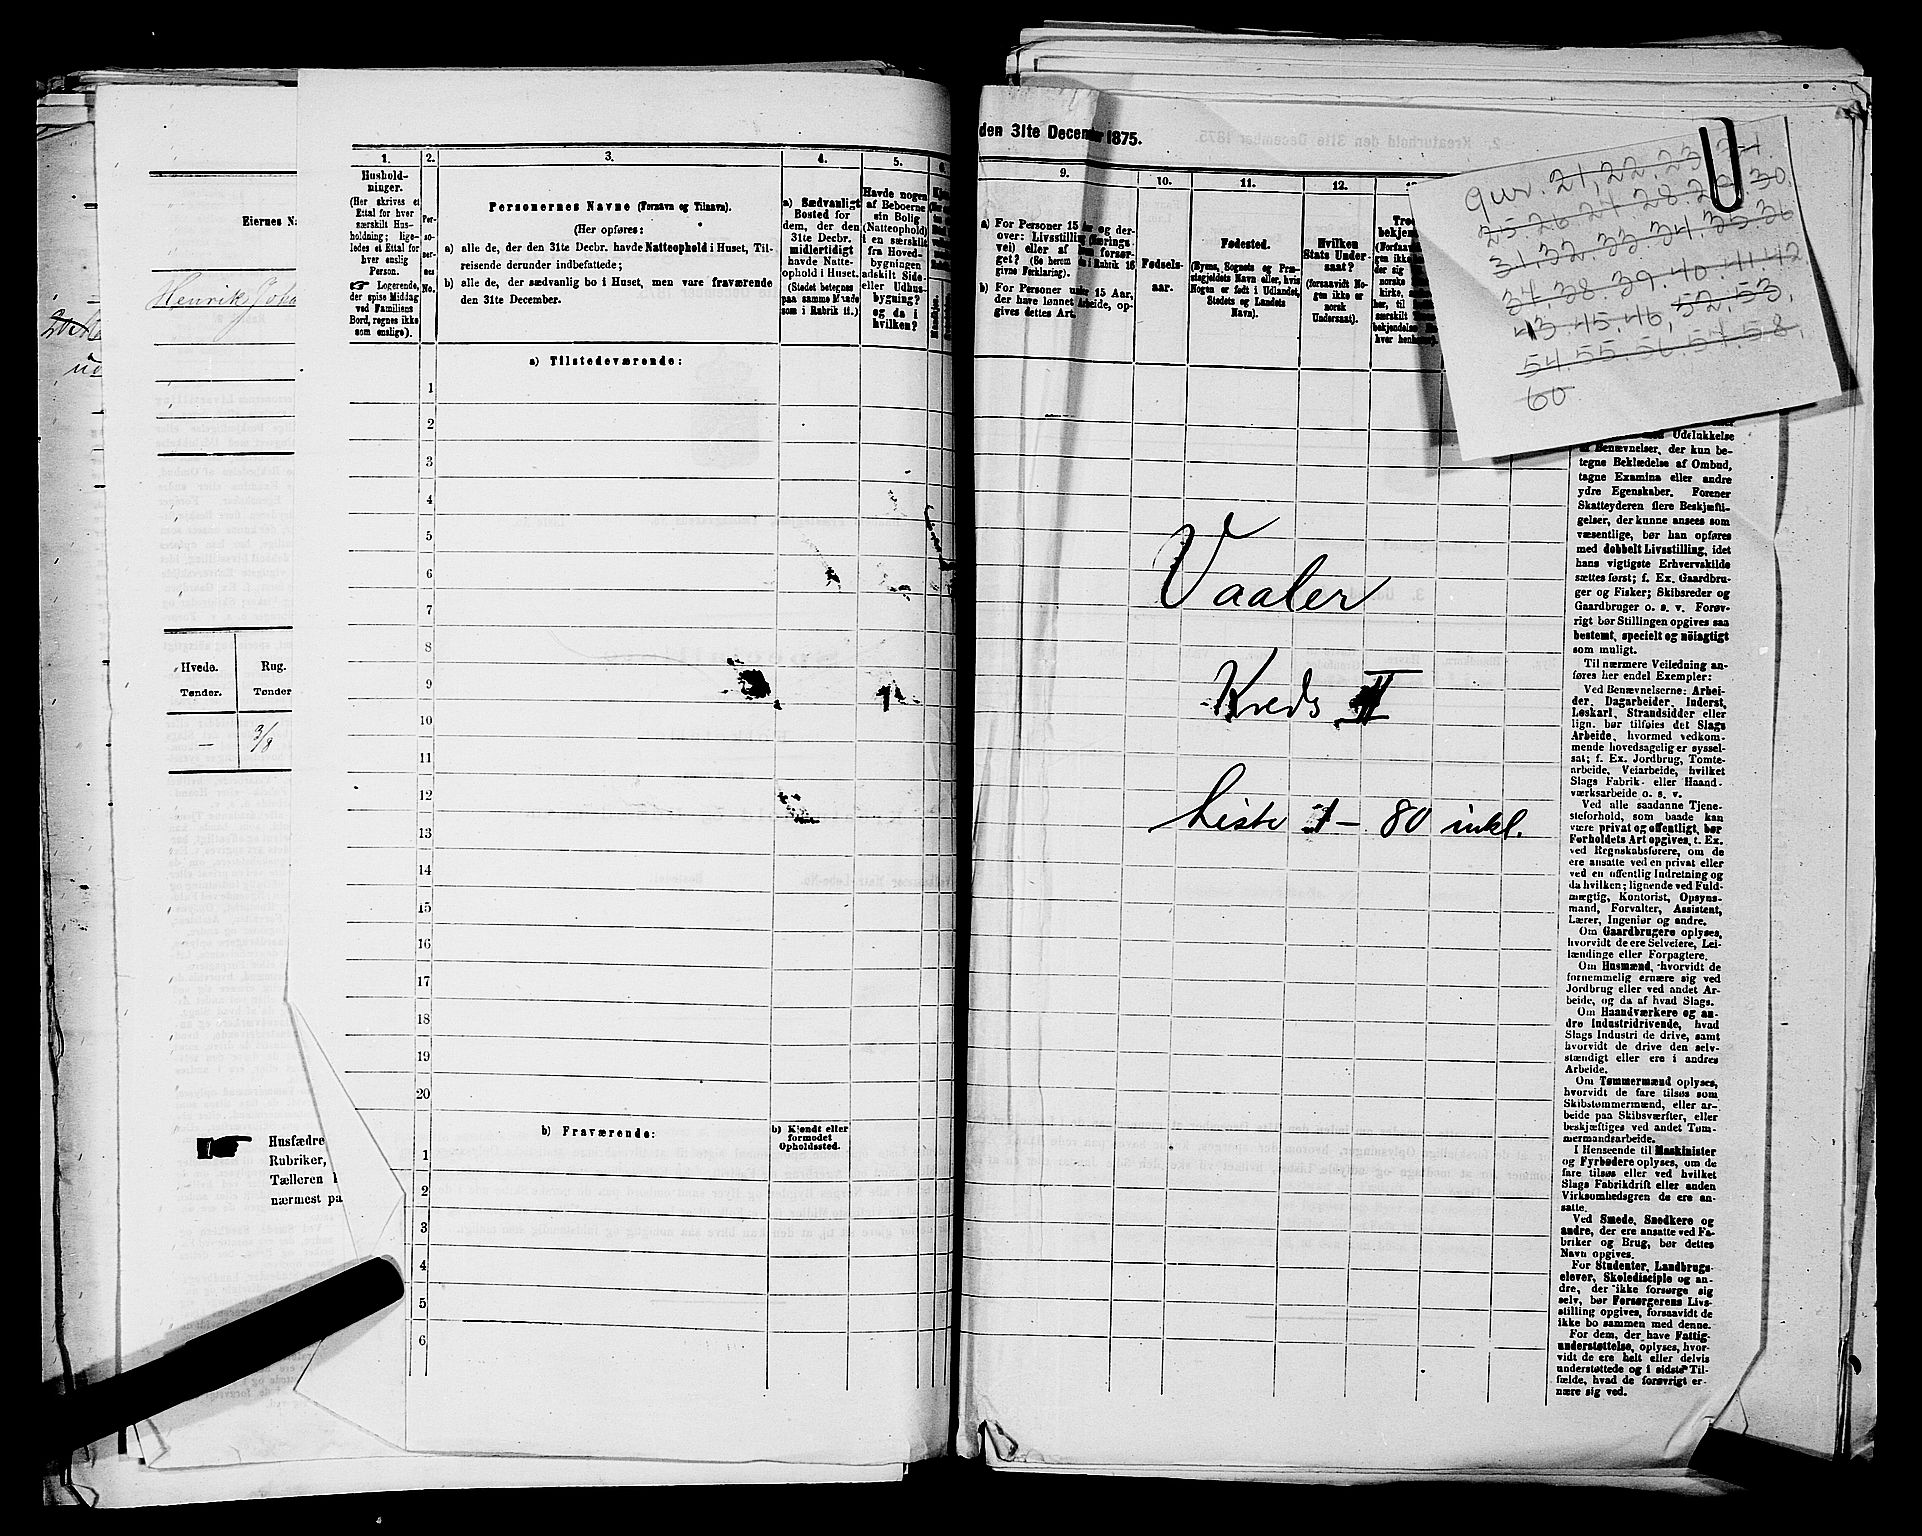 Eiernes
Henrik
Hvede.
Rug.
Tønder.
Tønder
—
3/8
Husfædre
Rubriker,
Tælleren
nærmest pa
1.
2.
3.
4.
5.
Hushold-
ninger.
(Her skrives et
Ettal for hver
særskilt Hus-
holdning; lige-
ledes et Ettal for
hver enslig
Person.
☞ Logerende,
der spise Middag
ved Familiens
Bord, regnes ikke
som enslige).
Per-
so-
ner-
nes
No.
Personernes Navne (Fornavn og Tilnavn).
(Her opføres:
a) alle de, der den 31te Decbr. havde Natteophold i Huset, Til-
reisende derunder indbefattede;
b) alle de, der sædvanlig bo i Huset, men vare fraværende
den 31te December.
a) Sædvanligt
Bosted for
dem, der den
31te Decbr.
midlertidigt
havde Natte-
ophold i Huset.
(Stedet betegnes
paa samme Maade
som i Rubrik 11.)
Havde nogen
af Beboerne
sin Bolig
(Natteophold)
i en særskilt
fra Hoved-
bygningen
adskilt Side-
eller Udhus-
bygning?
og da i
hvilken?
a) Tilstedeværende:
1
2
3
4
5
6
7
8
9
10
11
12
13
14
15
16
17
18
19
20
b) Fraværende:
b) Kjendt eller
formodet
Opholdssted.
1
2
3
4
5
6
den 31te December 1875.
9.
10.
11.
12.
a) For Personer 15 Aar og der-
over: Livsstilling (Nærings-
vei) eller af hvem forsør-
get? (Se herom i Rubrik 16
givne Forklaring).
b) For Personer under 15 Aar,
der have lønnet Arbeide, op-
gives dettes Art.
Fødsels-
aar.
Fødested.
(Byens, Sognets og Præ-
stegjeldets Navn eller, hvis
Nogen er født i Udlandet,
Stedets og Landets
Navn).
Hvilken
Stats Under-
saat?
(forsaavidt No-
gen ikke er
norsk
Undersaat).
Vaaler
Kreds II
Liste 1 – 80 inkl.
Gur. 21, 22. 23
30.
31. 32. 33 34. 35. 36
38. 39. 40. 41. 42
43. 45. 46, 52, 53,
54. 55. 56. 57. 58,
60
Udelukkelse
af Benævnelser, der kun be-
tegne Beklædelse af Ombud,
tagne Examina eller andre
ydre Egenskaber. Forener
Skatteyderen flere Beskjæfti-
gelser, der kunne ansees som
væsentlige, bør han opføres
med dobbelt Livsstilling, idet
hans vigtigste Erhvervskilde
sættes først; f. Ex. Gaardbru-
ger og Fisker; Skibsreder og
Gaardbruger o. s. v. Forøv-
rigt bør Stillingen opgives saa
bestemt, specielt og nöiagtigt
som muligt.
Til nærmere Veiledning an-
føres her endel Exempler:
Ved Benævnelserne: Arbei-
der, Dagarbeider, Inderst,
Løskarl, Strandsidder eller
lign. bør tilføies det Slags
Arbeide, hvormed vedkom-
mende hovedsagelig er syssel-
sat; f. Ex. Jordbrug, Tomte-
arbeide, Veiarbeide, hvilket
Slags Fabrik- eller Haand-
værksarbeide o. s. v.
Ved alle saadanne Tjene-
steforhold, som baade kan
være privat og offentligt, bør
Forholdets Art opgives, t. Ex.
ved Regnskabsførere, om de
ere ansatte ved en privat eller
ved en offentlig Indretning og
da hvilken; lignende ved Fuld-
mægtig, Kontorist, Opsyns-
mand, Forvalter, Assistent,
Lærer, Ingeniør og andre.
Om Gaardbrugere oplyses,
hvorvidt de ere Selveiere, Lei-
lændinge eller Forpagtere.
Om Husmænd, hvorvidt de
fornemmelig ernære sig ved
Jordbrug eller ved andet Ar-
beide, og da af hvad Slags.
Om Haandværkere og an-
dre Industridrivende, hvad
Slags Industri de drive, samt
hvorvidt de drive den selv-
stændigt eller ere i andres
Arbeide.
Om Tømmermænd oplyses,
hvorvidt de fare tilsøs som
Skibstømmermænd, eller ar-
beide paa Skibsværfter, eller
beskjæftiges ved andet Tøm-
mermandsarbeide.
I Henseende til Maskinister
og Fyrbødere oplyses, om de
fare tilsøs eller ved hvilket
Slags Fabrikdrift eller anden
Virksomhedsgren de ere an-
satte.
Ved Smede, Snedkere og
andre, der ere ansatte ved Fa-
briker og Brug, bør dettes
Navn opgives.
For Studenter, Landbrugs-
elever, Skoledisciple og an-
dre, der ikke forsørge sig
selv, bør Forsørgerens Livs-
stilling opgives, forsaavidt de
ikke bo sammen med denne.
For dem, der have Fattig-
understøttelse, oplyses, hvor-
vidt de ere helt eller delvis
understøttede og i sidste Til-
fælde, hvad de forøvrigt er-
nære sig ved.